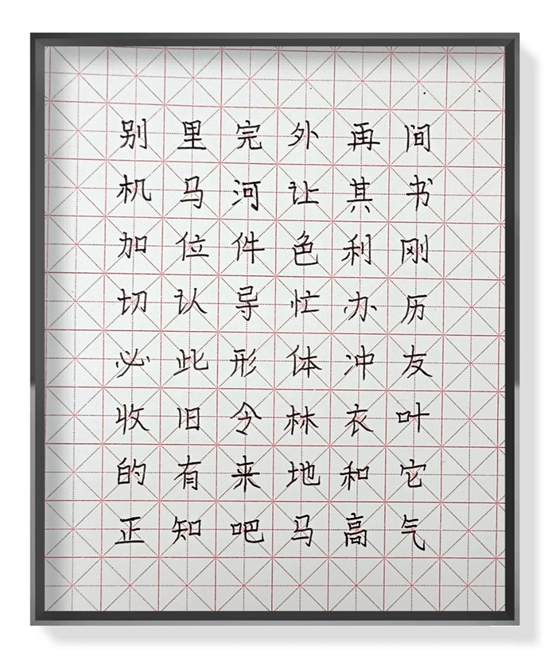 别里完外再间
机马河让其书
加位件色利刚
切认导忙办历
必此形体冲友
收旧令林衣叶
的有来地和它
正知吧马高气